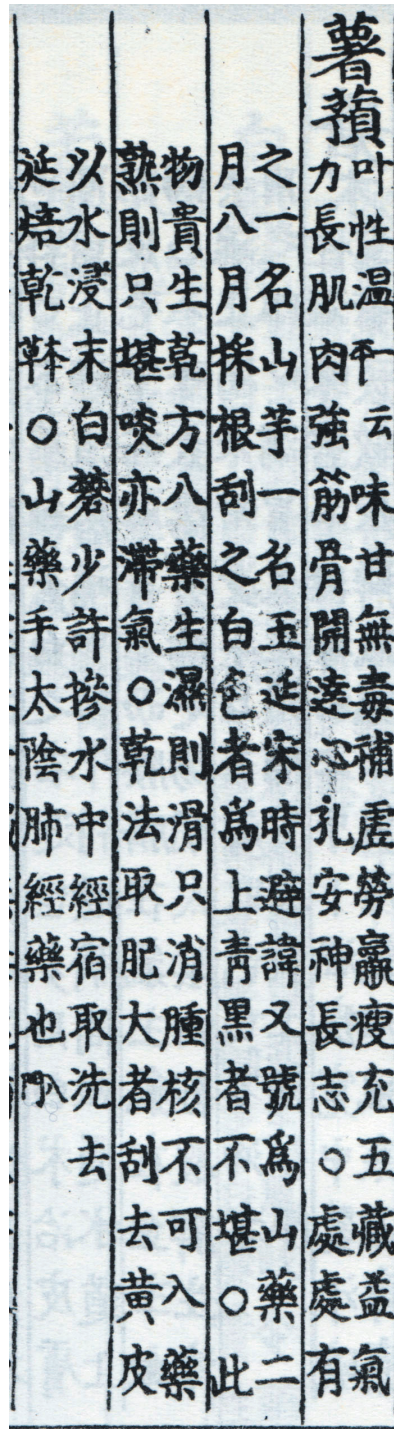 薯蕷
마性温一云平味甘無毒補虛勞羸瘦充五藏益氣
力長肌肉強筋骨開達心孔安神長志○處處有
之一名山芋一名玉延宋時避諱又號爲山藥二
月八月採根刮之白色者爲上靑黑者不堪○此
物貴生乾方入藥生濕則滑只消腫核不可入藥
熟則只堪啖亦滯氣○乾法取肥大者刮去黃皮
以水浸末白礬少許摻水中經宿取洗去
涎焙乾本草○山藥手太陰肺經藥也入門